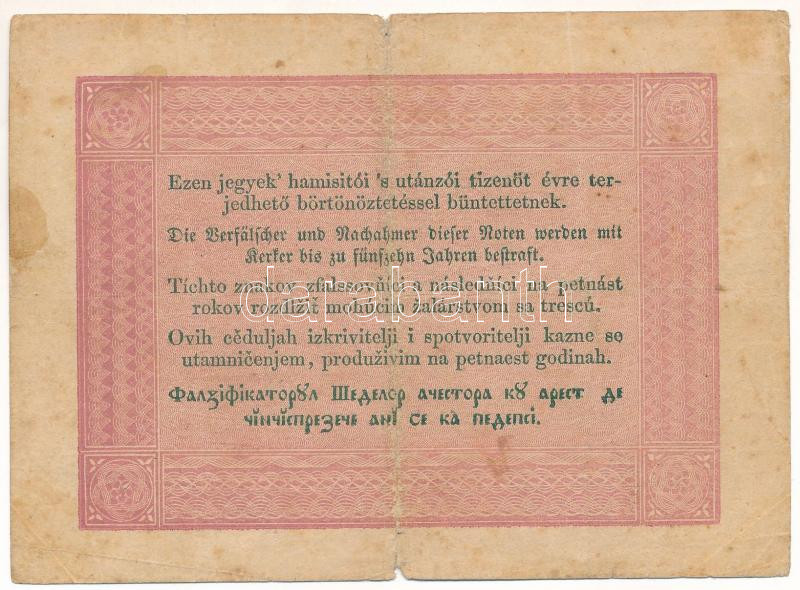 Ezen jegyek' hamisitói 's utánzói tizenöt évre ter-
jedhető börtönöztetéssel büntettetnek.
Die Verfälscher und Nachahmer dieser Noten werden mit
Kerker bis zu fünfzehn Jahren bestraft.
Tíchto znakov zfalssovňíci a následňíci na petnást
rokov rozdlžiť mohúcim žalárstvom sa trescú.
darabanth
Ovih cěduljah izkrivitelji i spotvoritelji kazne se
utamničenjem, produživim na petnaest godinah.
Фалзіфікаторꙋл Шеделор ачестора кꙋ арест де
чінчіспрезече ані се ка педепсі.